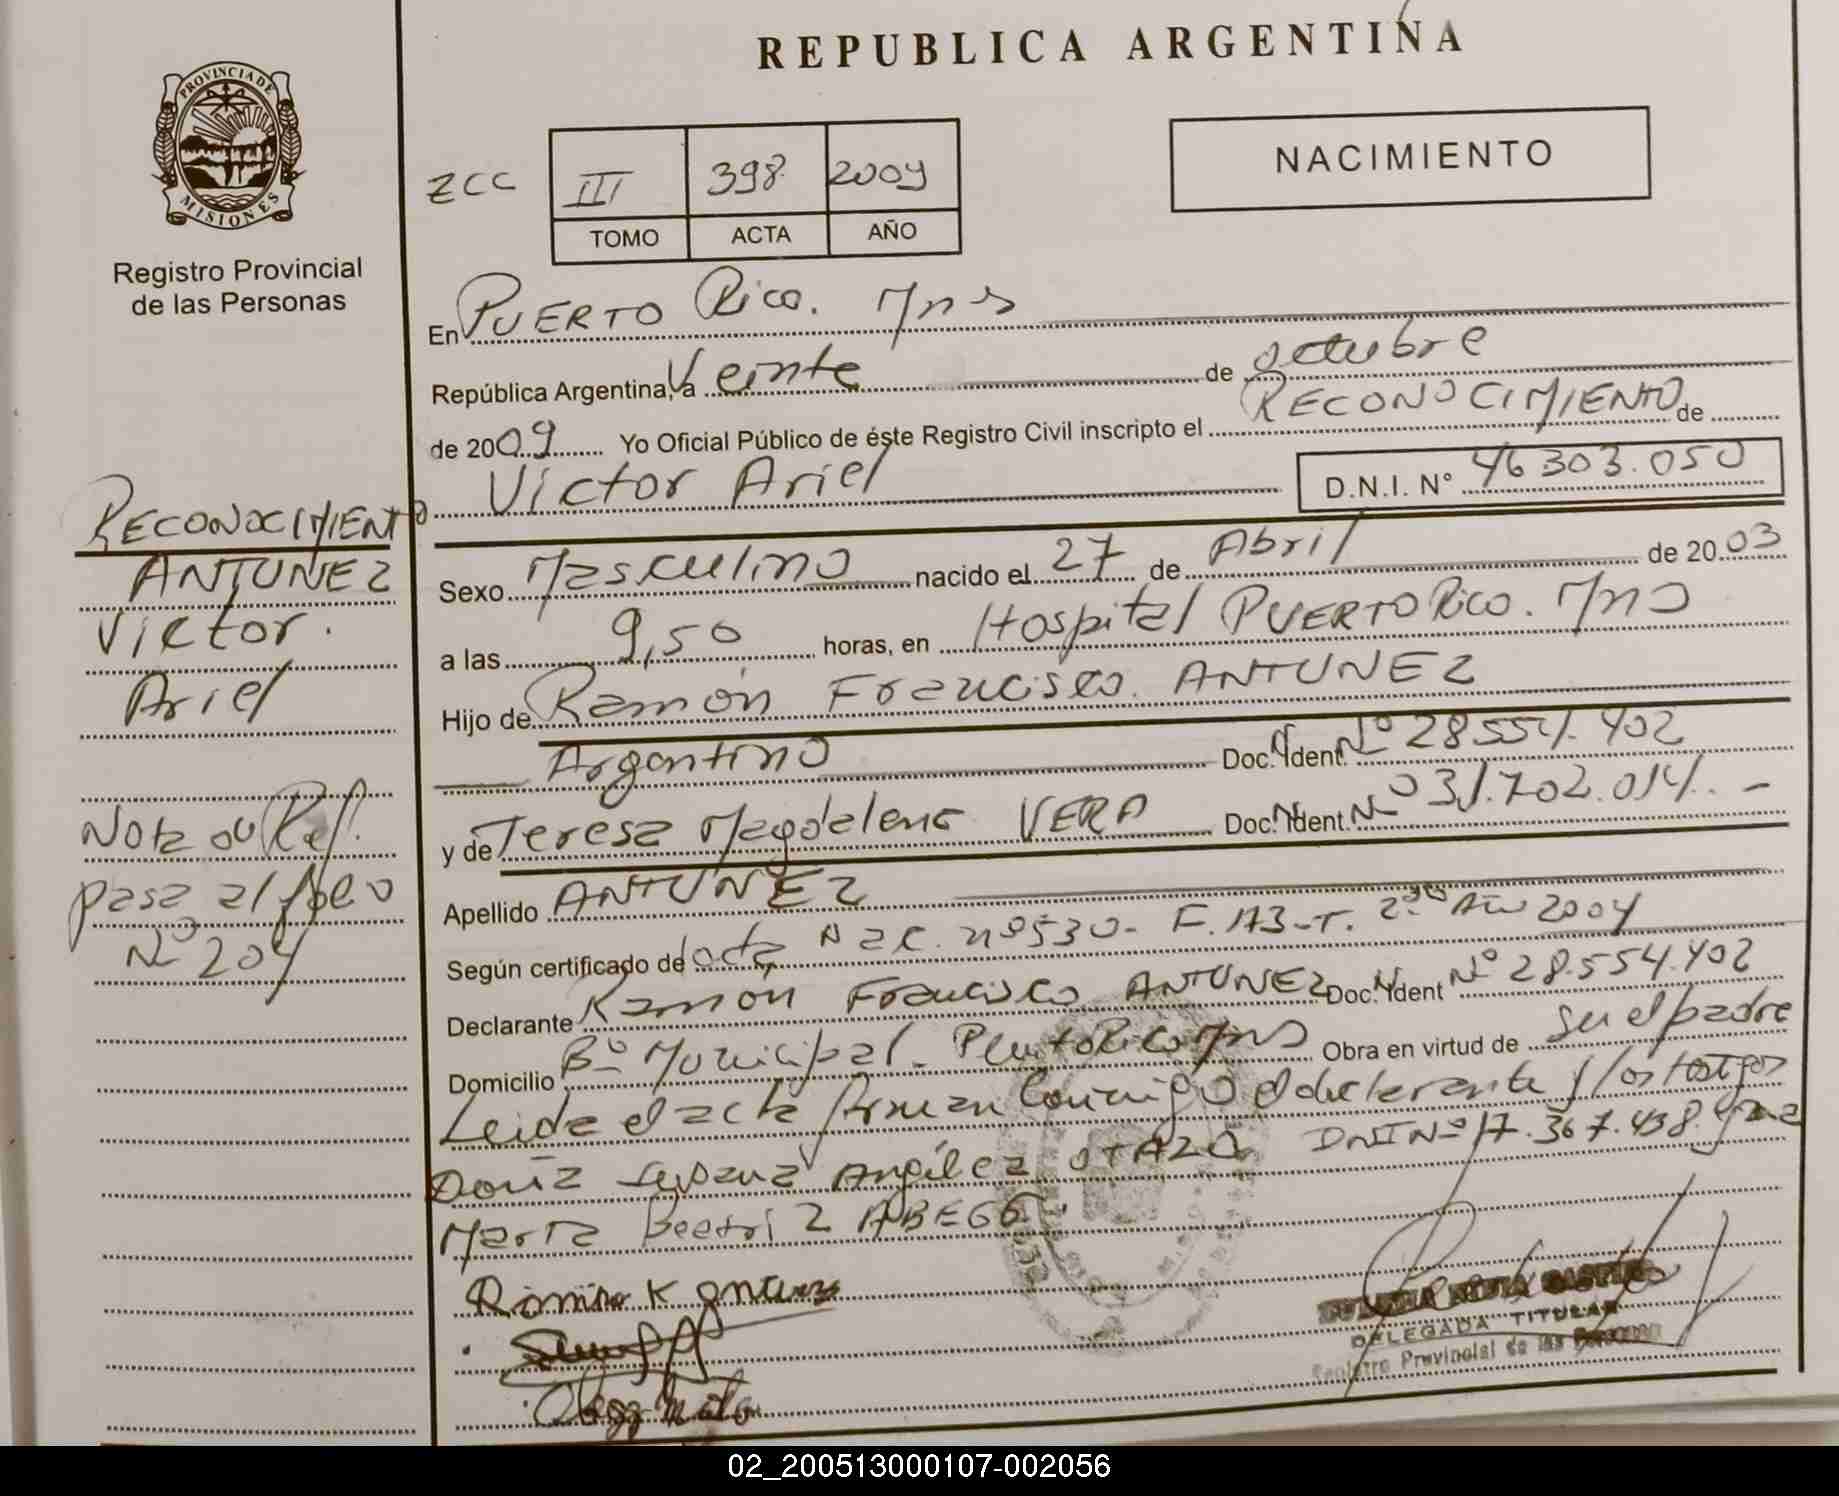 REPUBLICA ARGENTINA
PROVINCIA DE MISIONES
Registro Provincial
de las Personas
NACIMIENTO
ZCC III 398 2009
TOMO ACTA AÑO
En PUERTO Rico. Mns
República Argentina, a Veinte de octubre
de 2009 Yo Oficial Público de éste Registro Civil inscripto el RECONOCIMIENTO de
Victor Ariel D.N.I. N° 46303.050
Sexo Masculino nacido el 27 de Abril de 2003
a las 9,50 horas, en Hospital PUERTO Rico. Mns
Hijo de Ramón Francisco ANTUNEZ
Argentino Doc. Ident. Nº 28554.402
y de Teresa Magdalena VERA Doc. Ident. Nº 31.702.014. -
Apellido ANTUNEZ
Según certificado de acta Nac. nº530- F. 173-T. 2do Año 2004
Declarante Ramón Francisco ANTUNEZ Doc. Ident Nº 28.554.402
Domicilio Bº Municipal - Puerto Rico Mns Obra en virtud de ser el padre
Leida el acta firman conmigo el declarante y los testigos
Doña Susana Angélica OTAZO DNI Nº 17.367.438. y
Marta Beatriz ABEGG
DELEGADA TITULAR
Registro Provincial de las Personas
RECONOCIMIENTO
ANTUNEZ
Victor
Ariel
Nota de Ref.
pasa al folio
Nº 204
02_200513000107-002056